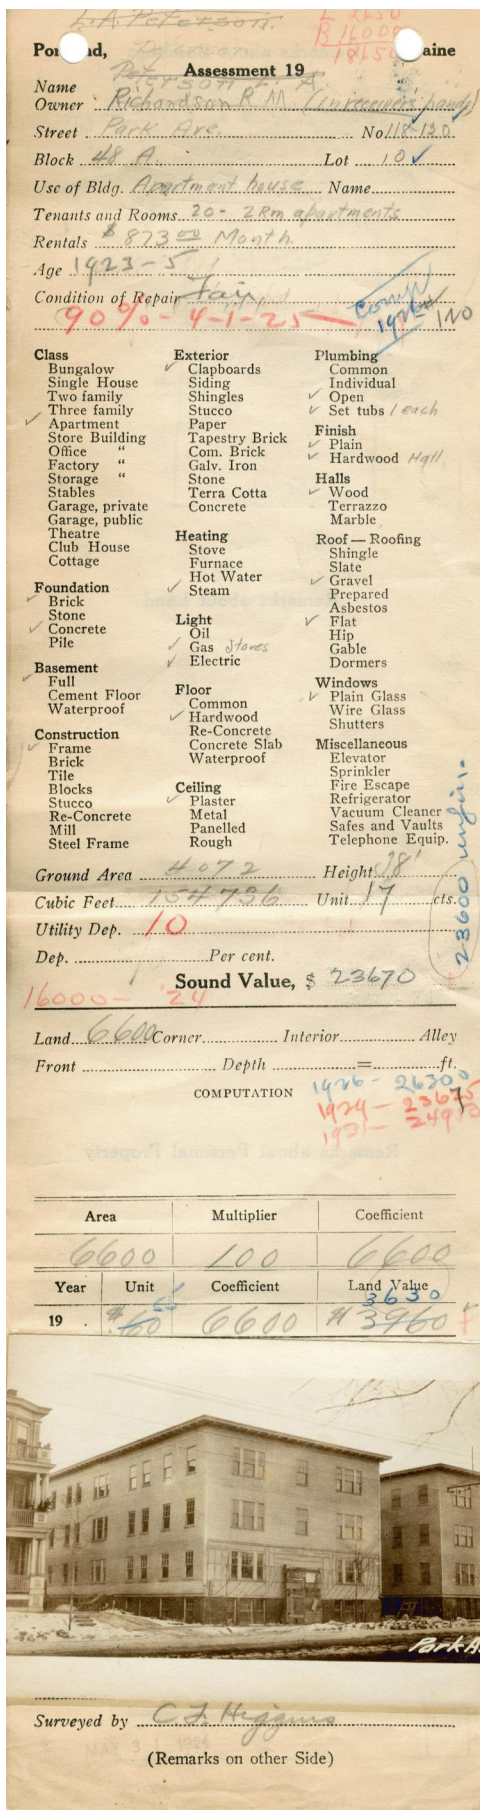 L.A. Peterson.
L 2650
B 16000
18650
Portland, Maine
Assessment 19
Peterson L A
Name
Owner Richardson R M. (in receivers hands)
Street Park Ave. No 118-120
Block 48 A. Lot 10 ✓
Use of Bldg. Apartment house Name
Tenants and Rooms 20 - 2 Rm apartments
Rentals $873 00 Month
Age 1923 - 5
Condition of Repair Fair
90% - 4-1-25
Comp
1926
120
Class
Bungalow
Single House
Two family
Three family
✓ Apartment
Store Building
Office "
Factory "
Storage "
Stables
Garage, private
Garage, public
Theatre
Club House
Cottage
Foundation
✓ Brick
Stone
✓ Concrete
Pile
Basement
✓ Full
Cement Floor
Waterproof
Construction
✓ Frame
Brick
Tile
Blocks
Stucco
Re-Concrete
Mill
Steel Frame
Exterior
✓ Clapboards
Siding
Shingles
Stucco
Paper
Tapestry Brick
Com. Brick
Galv. Iron
Stone
Terra Cotta
Concrete
Heating
Stove
Furnace
Hot Water
✓ Steam
Light
Oil
✓ Gas Stoves
✓ Electric
Floor
Common
✓ Hardwood
Re-Concrete
Concrete Slab
Waterproof
Ceiling
✓ Plaster
Metal
Panelled
Rough
Plumbing
Common
Individual
✓ Open
✓ Set tubs 1 each
Finish
✓ Plain
✓ Hardwood Hall
Halls
✓ Wood
Terrazzo
Marble
Roof — Roofing
Shingle
Slate
✓ Gravel
Prepared
Asbestos
✓ Flat
Hip
Gable
Dormers
Windows
✓ Plain Glass
Wire Glass
Shutters
Miscellaneous
Elevator
Sprinkler
Fire Escape
Refrigerator
Vacuum Cleaner
Safes and Vaults
Telephone Equip.
23600 unfin.
Ground Area 4072 Height 38'
Cubic Feet 154736 Unit 17 cts.
Utility Dep. 10
Dep. Per cent.
Sound Value, $ 23670
16000 - '24
Land 6600 Corner Interior Alley
Front Depth = ft.
COMPUTATION
1926 - 26300
1924 - 23675
1925 - 24950
Area Multiplier Coefficient
6600 100 6600
Year Unit Coefficient Land Value
55 3630
19 . $60 6600 $3960
Park A
Surveyed by C. F. Higgins
MAY 3 1924
(Remarks on other Side)